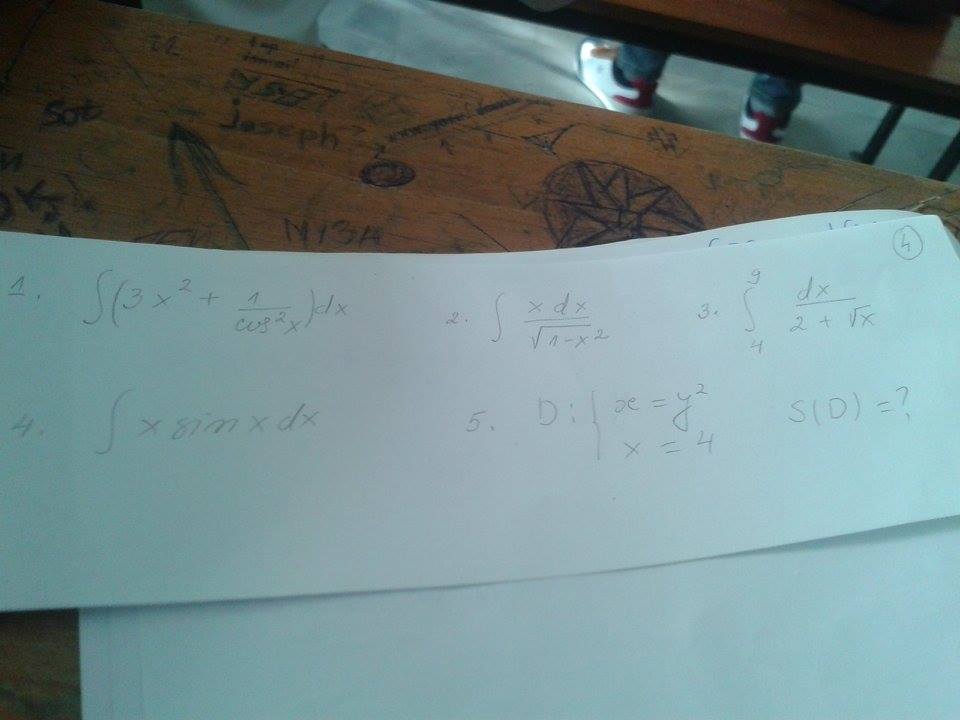 Sot
Joseph
N13A
4
1. ∫(3x² + 1/cos²x)dx
2. ∫ x dx/√1-x²
3. ∫₄⁹ dx/2 + √x
4. ∫ x sin x dx
5. D: { x = y²
x = 4
S(D) = ?